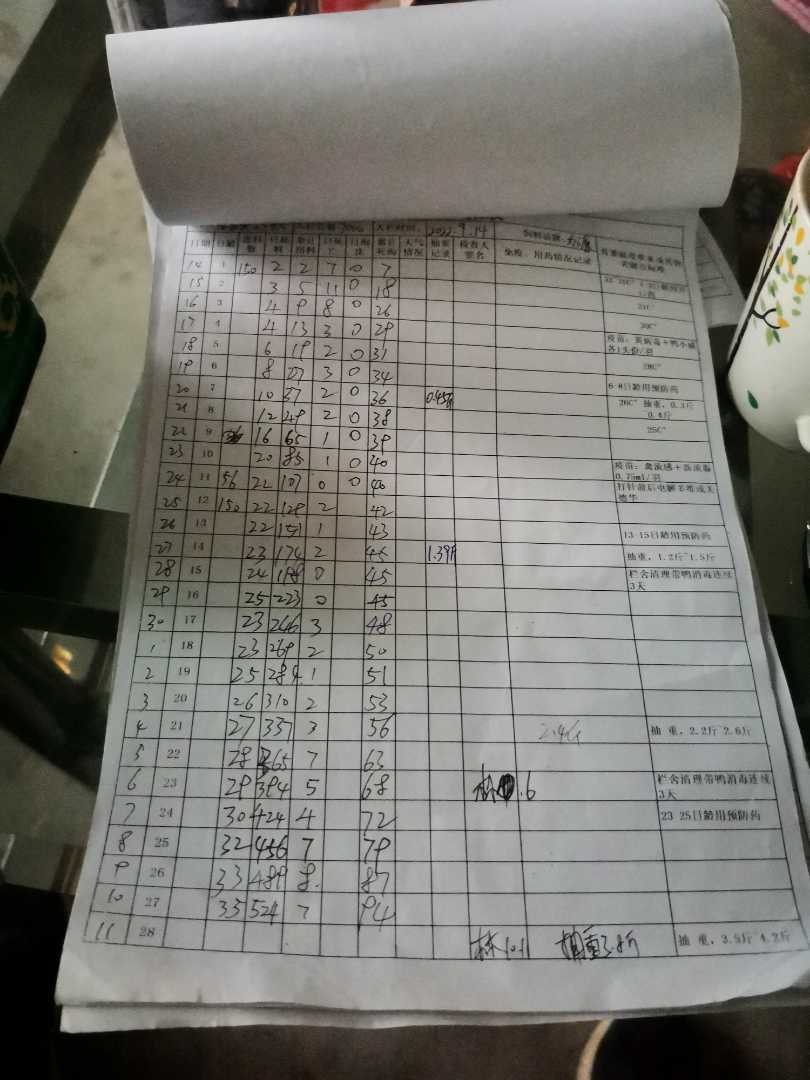 2022. 9.14
日期 日龄 进料数 日耗料 累计用料 日死亡 日淘汰 累计死淘 天气情况 抽重记录 检查人签名 免疫、用药情况记录
14 1 150 2 2 7 0 7
15 2 3 5 11 0 18
16 3 4 9 8 0 26 31C°
17 4 4 13 3 0 29 30C°
18 5 6 19 2 0 31 疫苗:
19 6 8 27 3 0 34 28C°
20 7 10 37 2 0 36 6-8日龄用预防药
21 8 12 49 2 0 38 26C° 抽重, 0.3斤 0.4斤
22 9 16 65 1 0 39 25C°
23 10 20 85 1 0 40
24 11 56 22 107 0 0 40 疫苗: 0.75ml/羽
25 12 150 22 129 2 42
26 13 22 151 1 43 13-15日龄用预防药
27 14 23 174 2 45 抽重, 1.2斤~1.5斤
28 15 24 198 0 45 栏舍清理带鸭消毒连续3天
29 16 25 223 0 45
30 17 23 246 3 48
1 18 23 269 2 50
2 19 25 284 1 51
3 20 26 310 2 53
4 21 27 337 3 56 抽 重, 2.2斤~2.6斤
5 22 28 365 7 63
6 23 29 394 5 68 .6 栏舍清理带鸭消毒连续3天
7 24 30 424 4 72 23-25日龄用预防药
8 25 32 456 7 79
9 26 33 489 8 87
10 27 35 524 7 94
11 28 林10.11 抽重3.8斤 抽 重, 3.5斤~4.2斤